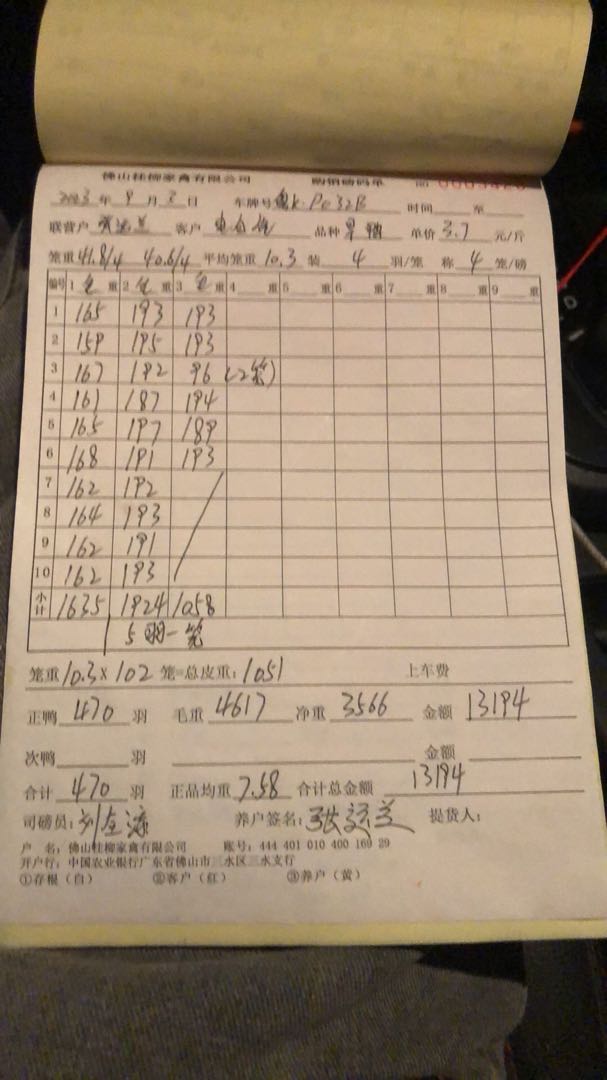 佛山桂柳家禽有限公司 购销磅码单 NO
2023年9月2日 车牌号 K·P032B 时间 至
联营户 客户 品种 旱鸭 单价3.7元/斤
笼重41.8/4 40.6/4 平均笼重10.3 装4羽/笼 称4笼/磅
编号 1 重 2 重 3 重 4 重 5 重 6 重 7 重 8 重 9 重
1 165 193 193
2 159 195 193
3 167 192 96 (2笼)
4 161 187 194
5 165 197 189
6 168 191 193
7 162 192
8 164 193
9 162 191
10 162 193
小计 1635 1924 1058
5羽一笼
笼重10.3×102笼=总皮重:1051 上车费
正鸭470羽 毛重4617 净重3566 金额13194
次鸭 羽 金额
合计470羽 正品均重7.58 合计总金额13194
司磅员: 养户签名: 提货人:
户 名:佛山桂柳家禽有限公司 账号:444 401 010 400 169 29
开户行:中国农业银行广东省佛山市三水区三水支行
①存根(白) ②客户(红) ③养户(黄)